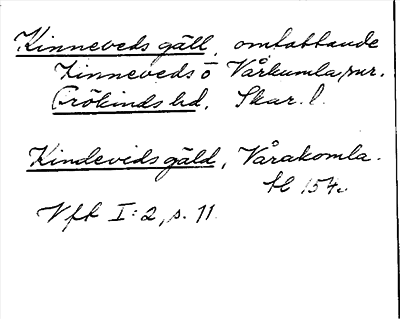 Kinneveds gäll, omfattande
Kinneveds o Vårkumla snr.
Frökinds hd. Skar. l.
Kindevids gäld, Vårakomla.
154.
Vfl I:2, s. 11.